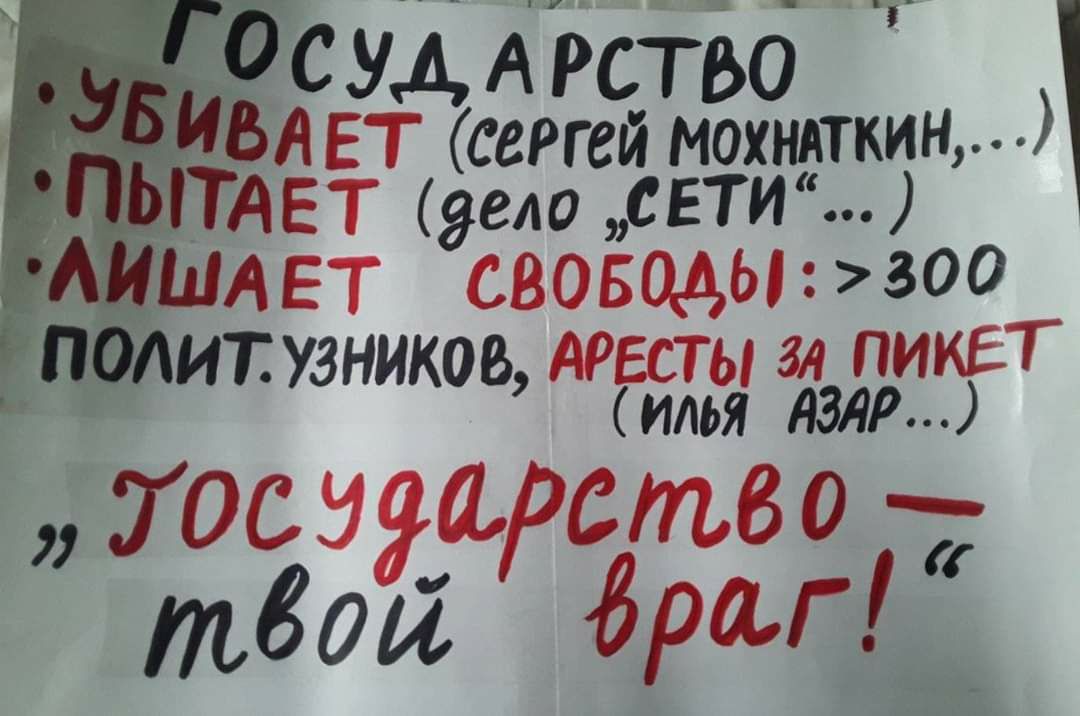 ГОСУДАРСТВО
•УБИВАЕТ (СЕРГЕЙ МОХНАТКИН,...)
•ПЫТАЕТ (дело „СЕТИ“...)
•ЛИШАЕТ СВОБОДЫ: >300
ПОЛИТ. УЗНИКОВ, АРЕСТЫ ЗА ПИКЕТ
(ИЛЬЯ АЗАР...)
„Государство —
твой враг!“